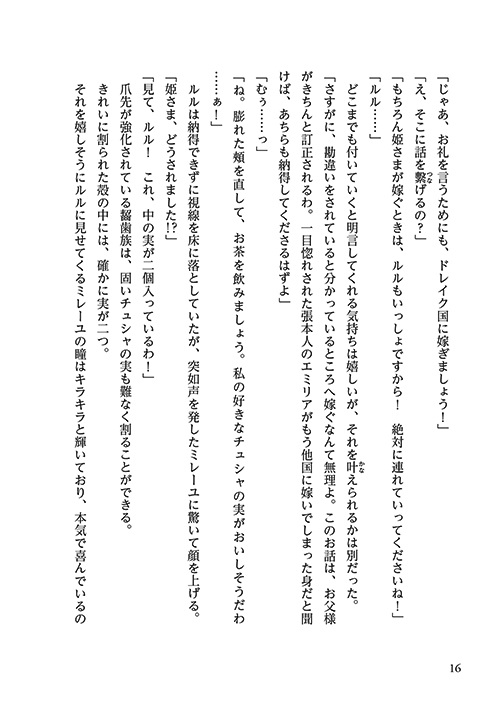 「じゃあ、お礼を言うためにも、ドレイク国に嫁ぎましょう！」
「え、そこに話を繋げるの？」
「もちろん姫さまが嫁ぐときは、ルルもいっしょですから！　絶対に連れていってくださいね！」
「ルル……」
　どこまでも付いていくと明言してくれる気持ちは嬉しいが、それを叶えられるかは別だった。
「さすがに、勘違いをされていると分かっているところへ嫁ぐなんて無理よ。このお話は、お父様
がきちんと訂正されるわ。一目惚れされた張本人のエミリアがもう他国に嫁いでしまった身だと聞
けば、あちらも納得してくださるはずよ」
「むぅ……っ」
「ね。膨れた頬を直して、お茶を飲みましょう。私の好きなチュシャの実がおいしそうだわ
……ぁ！」
　ルルは納得できずに視線を床に落としていたが、突如声を発したミレーユに驚いて顔を上げる。
「姫さま、どうされました!?」
「見て、ルル！　これ、中の実が二個入っているわ！」
　爪先が強化されている齧歯族は、固いチュシャの実も難なく割ることができる。
　きれいに割られた殻の中には、確かに実が二つ。
　それを嬉しそうにルルに見せてくるミレーユの瞳はキラキラと輝いており、本気で喜んでいるの
16